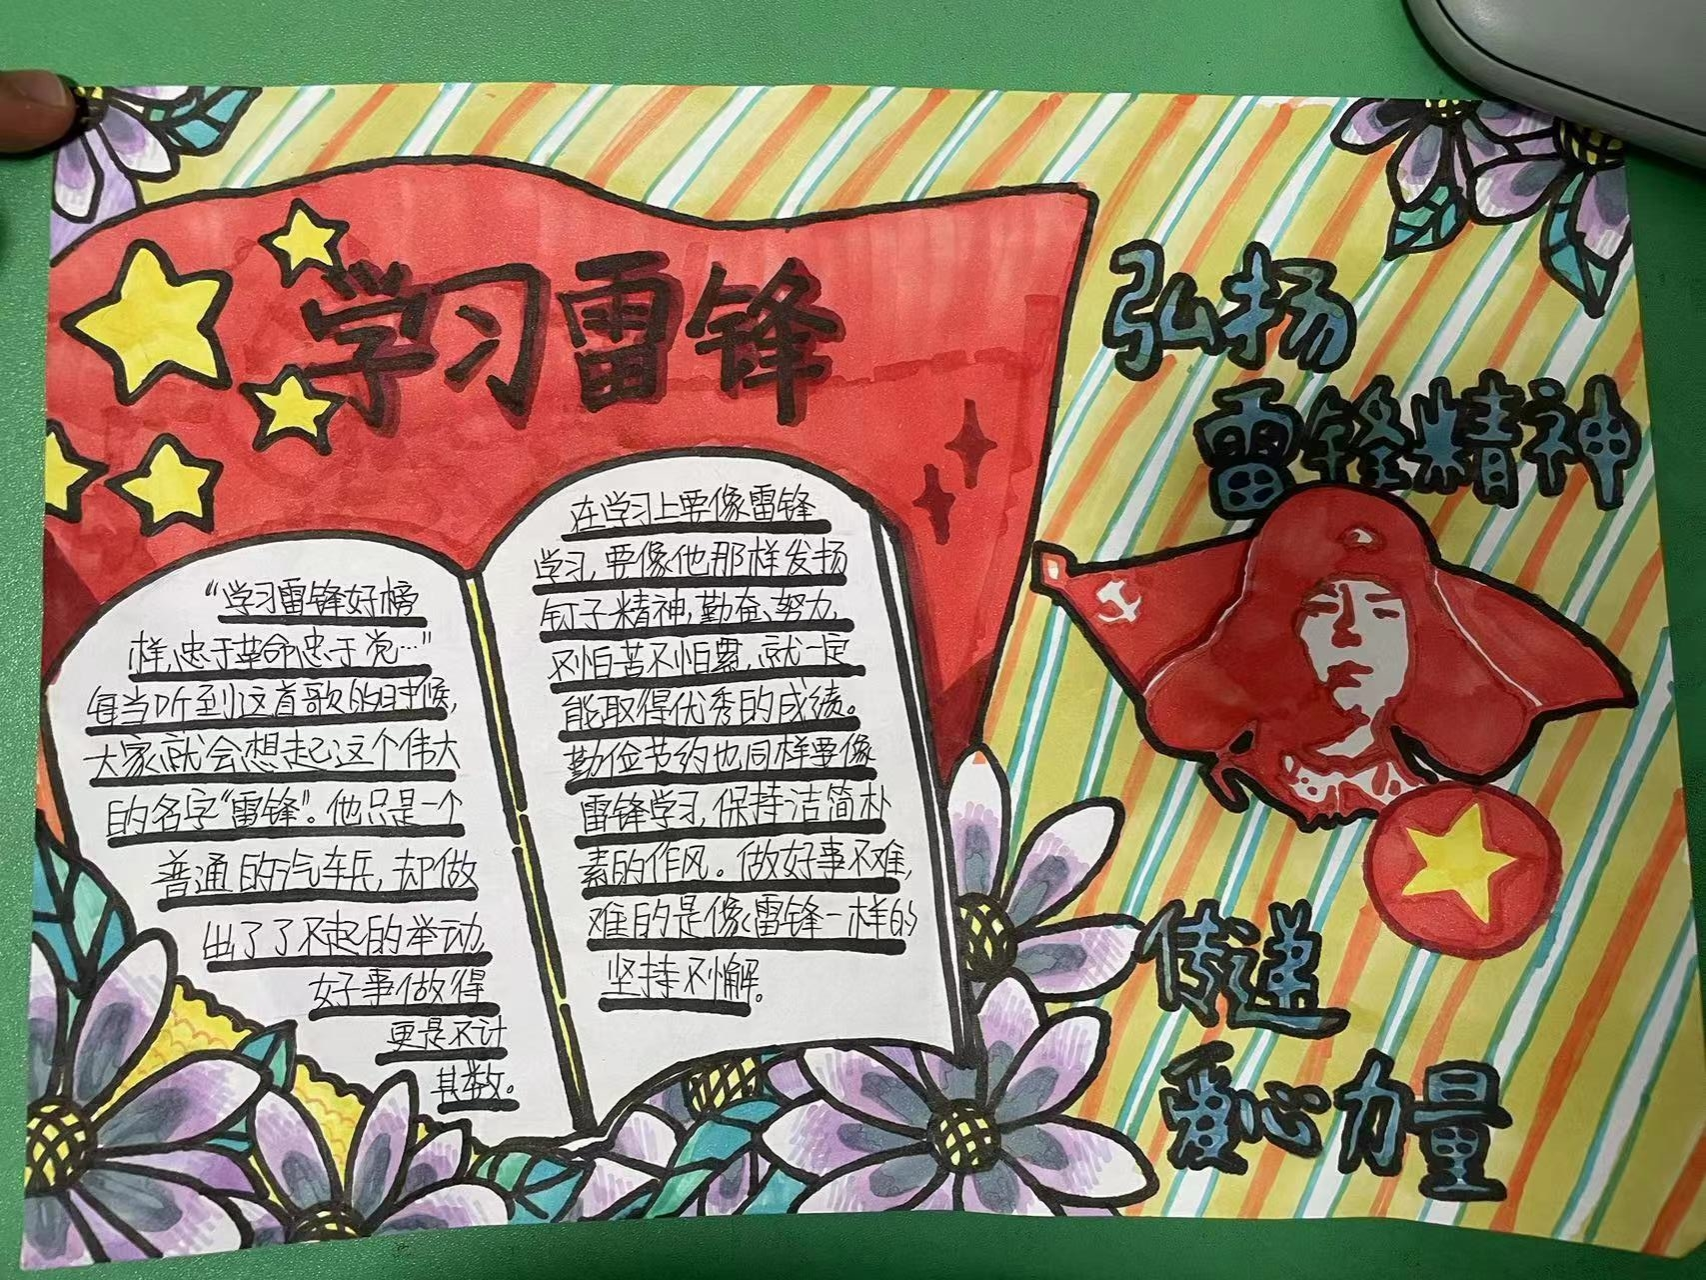 学习雷锋
弘扬
雷锋精神
“学习雷锋好榜
样,忠于革命忠于党…”
每当听到这首歌的时候,
大家就会想起这个伟大
的名字“雷锋”。他只是一个
普通的汽车兵,却做
出了了不起的举动,
好事做得
更是不计
其数。
在学习上要像雷锋
学习,要像他那样发扬
钉子精神,勤奋、努力,
不怕苦不怕累,就一定
能取得优秀的成绩。
勤俭节约也同样要像
雷锋学习,保持洁简朴
素的作风。做好事不难,
难的是像雷锋一样的
坚持不懈。
传递
爱心力量